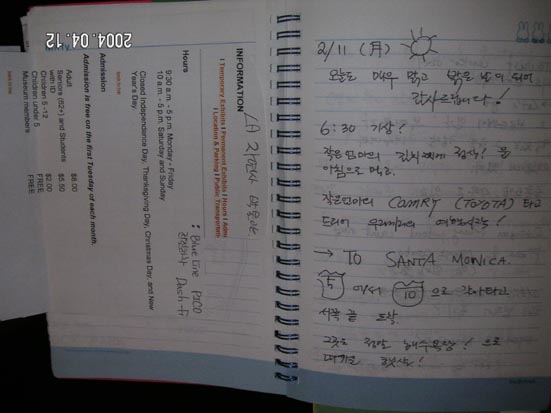 2004.04.12
LA 자연사 박물관
INFORMATION
| Temporary Exhibits | Permanent Exhibits | Hours | Admi
| Location & Parking | Public Transportati
Hours
9:30 a.m. - 5 p.m. Monday - Friday
10 a.m. - 5 p.m. Saturday and Sunday
Closed Independence Day, Thanksgiving Day, Christmas Day, and New
Year's Day.
: Blue Line PICO
Dash-F
Admission
Admission is free on the first Tuesday of each month.
Adult $8.00
Seniors (62+) and Students
with ID $5.50
Children 5 - 12 $2.00
Children under 5 FREE
Museum members FREE
2/11 (月)
오늘도 매우 맑고 밝은 날이 되어
감사드립니다!
6:30 기상!
작은엄마의 김치찌개
아침으로 먹고.
작은엄마의 CAMRY (TOYOTA) 타고
드디어 우리끼리의 여행시작!
→ TO SANTA MONICA.
5 에서 10 으로 갈아타고
서쪽 끝 도착.
그곳은 정말 해수욕장! 으로